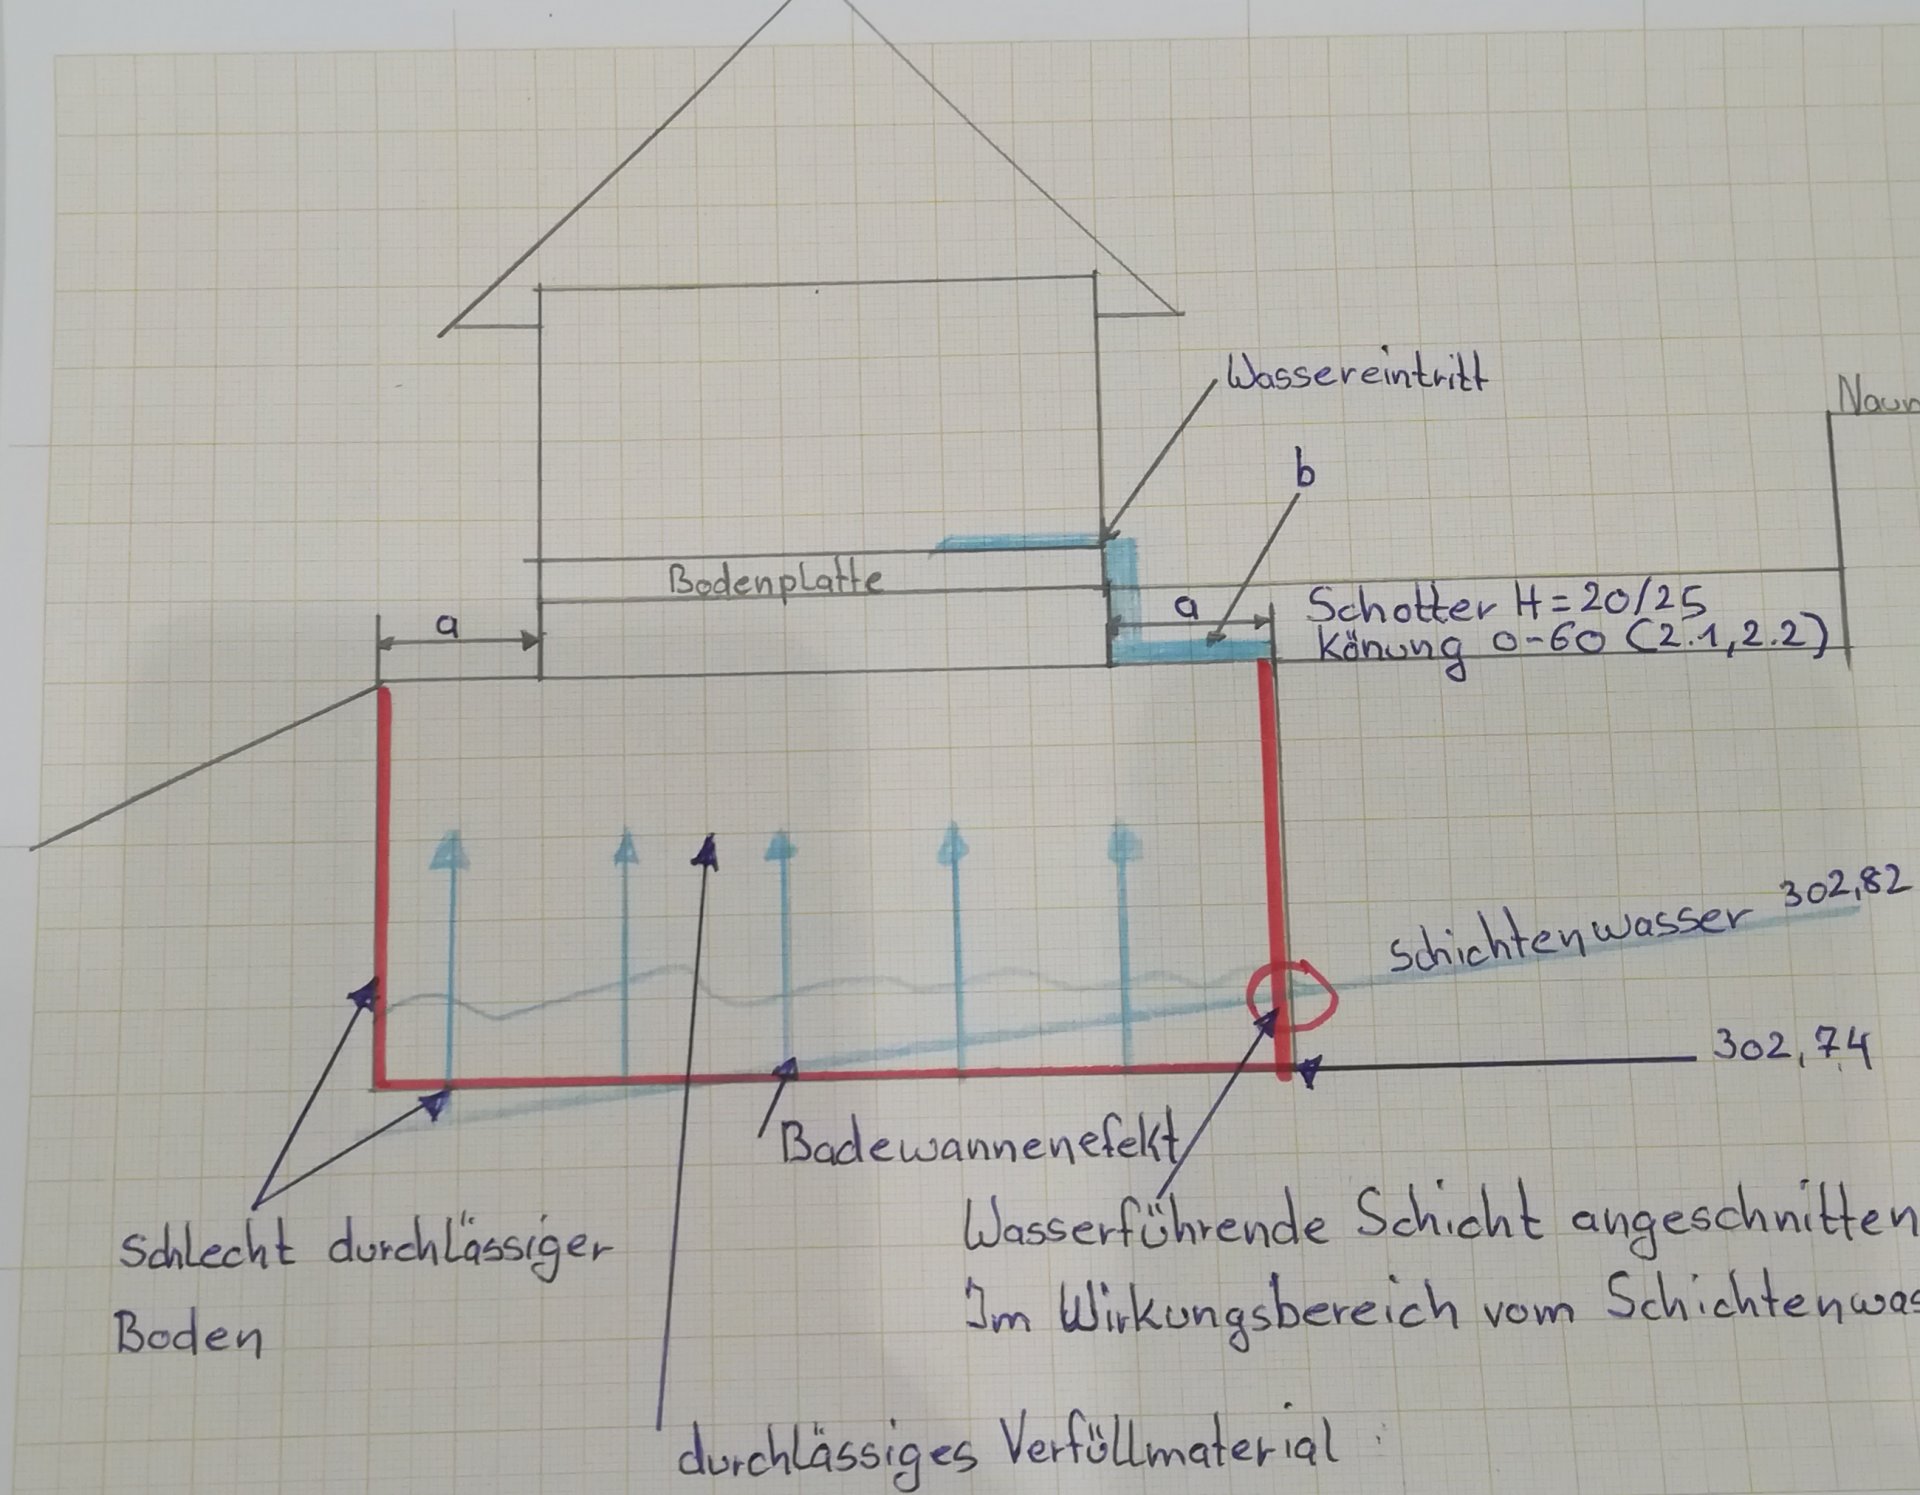 Wassereintritt
b
Bodenplatte
a
a
Schotter H = 20/25
Könung 0-60 (2.1, 2.2)
302,82
Schichtenwasser
302,74
Badewannenefekt
Schlecht durchlässiger
Boden
Wasserführende Schicht angeschnitten
Im Wirkungsbereich vom Schichtenwas
durchlässiges Verfüllmaterial